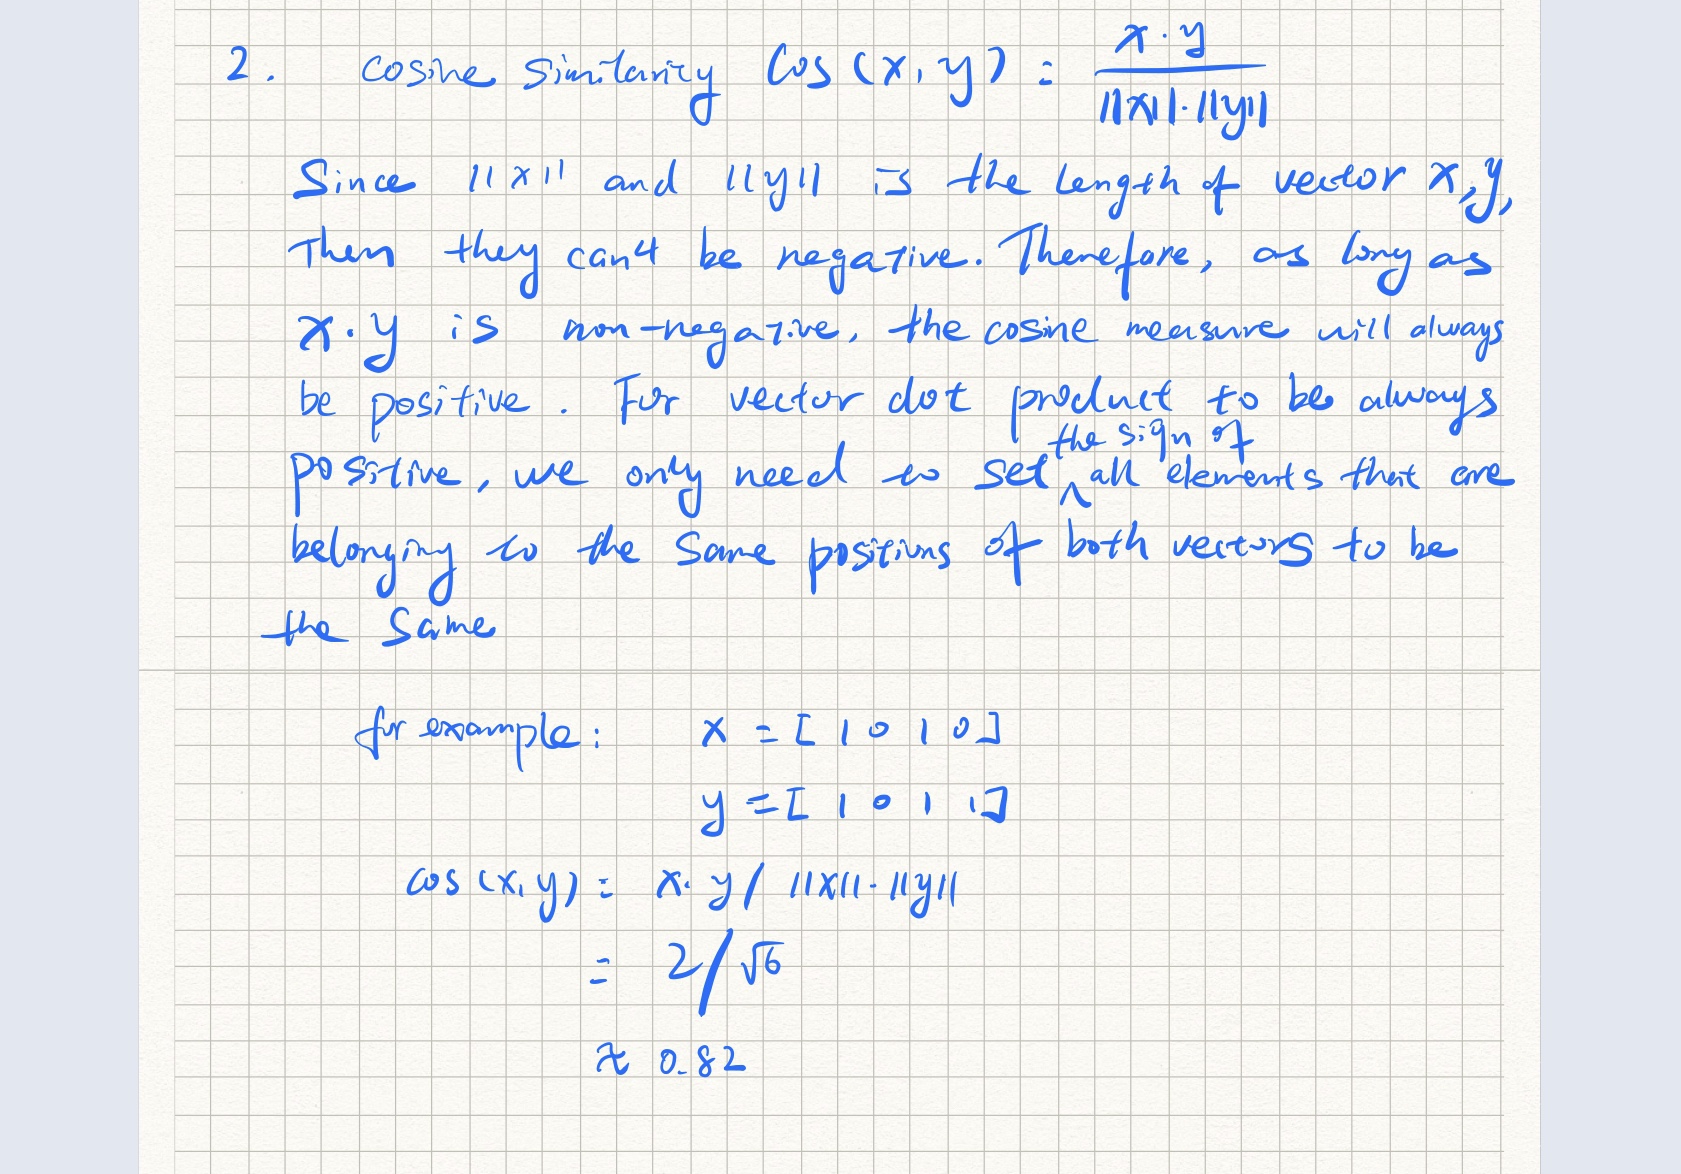 2. Cosine Similarity Cos(x, y) = x·y / ||x||·||y||
Since ||x|| and ||y|| is the length of vector x,y,
Then they can't be negative. Therefore, as long as
x·y is non-negative, the cosine measure will always
be positive. For vector dot product to be always
the sign of
positive, we only need to set ^ all elements that are
belonging to the same positions of both vectors to be
the same
for example: x = [1 0 1 0]
y = [1 0 1 1]
cos(x, y) = x·y / ||x||·||y||
= 2/√6
≈ 0.82